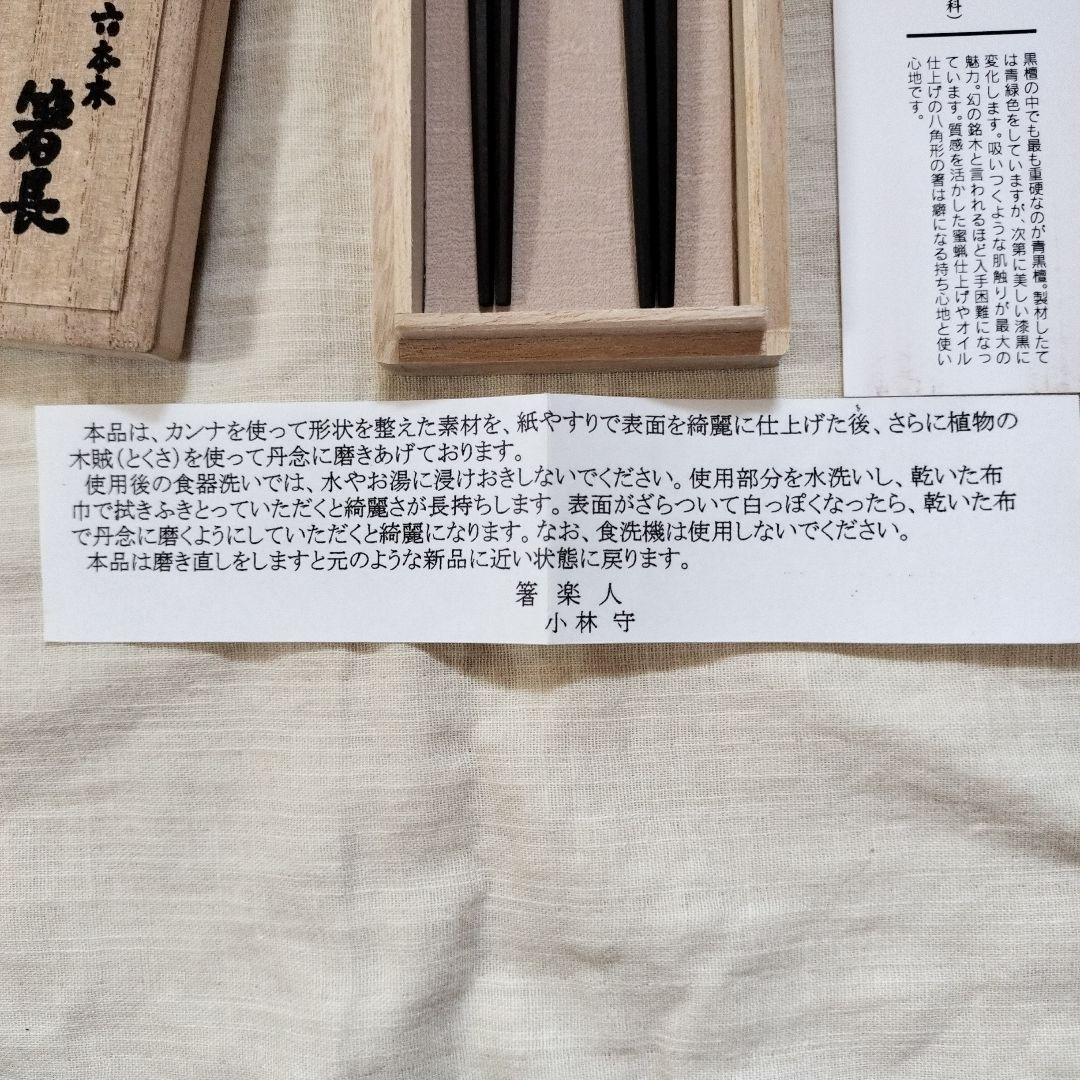 六本木
箸長
科）
黒檀の中でも最も重硬なのが青黒檀。製材したて
は青緑色をしていますが、次第に美しい漆黒に
変化します。吸いつくような肌触りが最大の
魅力。幻の銘木と言われるほど入手困難になっ
ています。質感を活かした蜜蝋仕上げやオイル
仕上げの八角形の箸は癖になる持ち心地と使い
心地です。
本品は、カンナを使って形状を整えた素材を、紙やすりで表面を綺麗に仕上げた後、さらに植物の
木賊（とくさ）を使って丹念に磨きあげております。
使用後の食器洗いでは、水やお湯に浸けおきしないでください。使用部分を水洗いし、乾いた布
巾で拭きふきとっていただくと綺麗さが長持ちします。表面がざらついて白っぽくなったら、乾いた布
で丹念に磨くようにしていただくと綺麗になります。なお、食洗機は使用しないでください。
本品は磨き直しをしますと元のような新品に近い状態に戻ります。
箸楽人
小林守